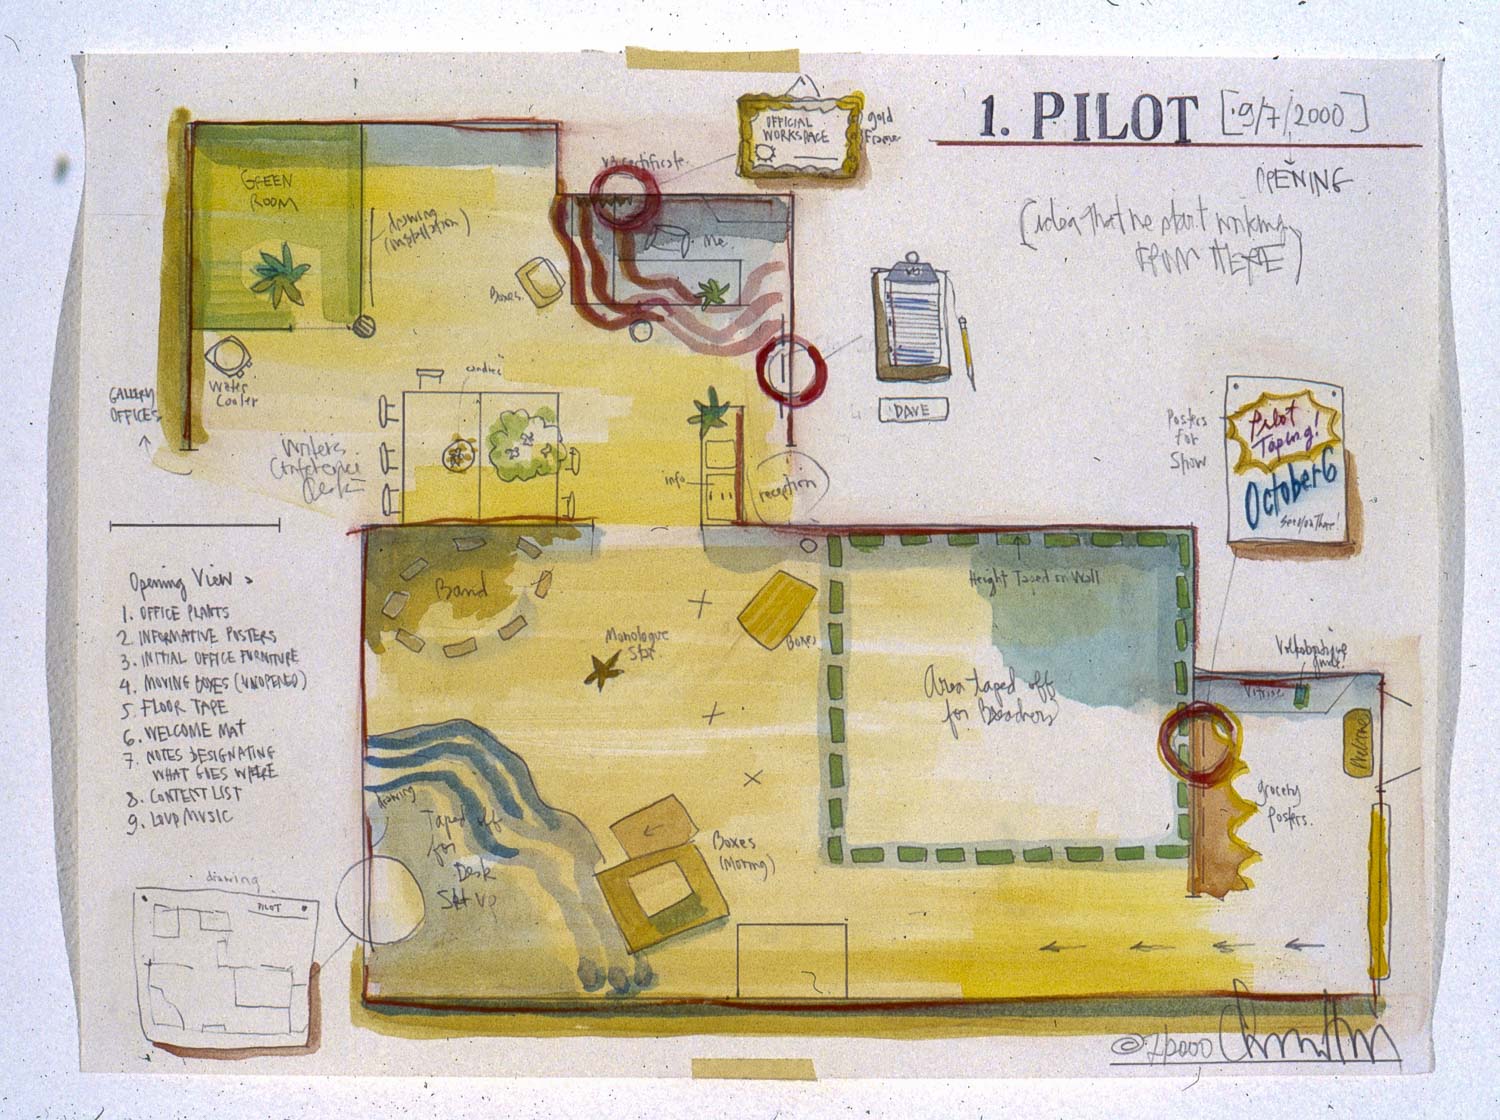 1. PILOT [·9/7/2000]
OPENING
(idea that we start working
FROM HERE)
OFFICIAL
WORKSPACE
gold
Frame
VB certificate.
GREEN
ROOM
drawing
(installation)
Me.
Boxes
Water
Cooler
GALLERY
OFFICES
candies
Writers
Conference
Desk
info
reception
DAVE
Posters
For
Show
Pilot
Taping!
October 6
See you There!
Opening View >
1. OFFICE PLANTS
2. INFORMATIVE POSTERS
3. INITIAL OFFICE FURNITURE
4. MOVING BOXES (UNOPENED)
5. FLOOR TAPE
6. WELCOME MAT
7. NOTES DESIGNATING
WHAT GOES WHERE
8. CONTENT LIST
9. LOUD MUSIC
Band
Monologue
Star.
Boxes
Height Taped on Wall
Area taped off
for Bleachers
Vitrine
Welcome
grocery
Posters.
drawing
Taped off
for
Desk
Set up
Boxes
(Moving)
drawing
PILOT
© 2000